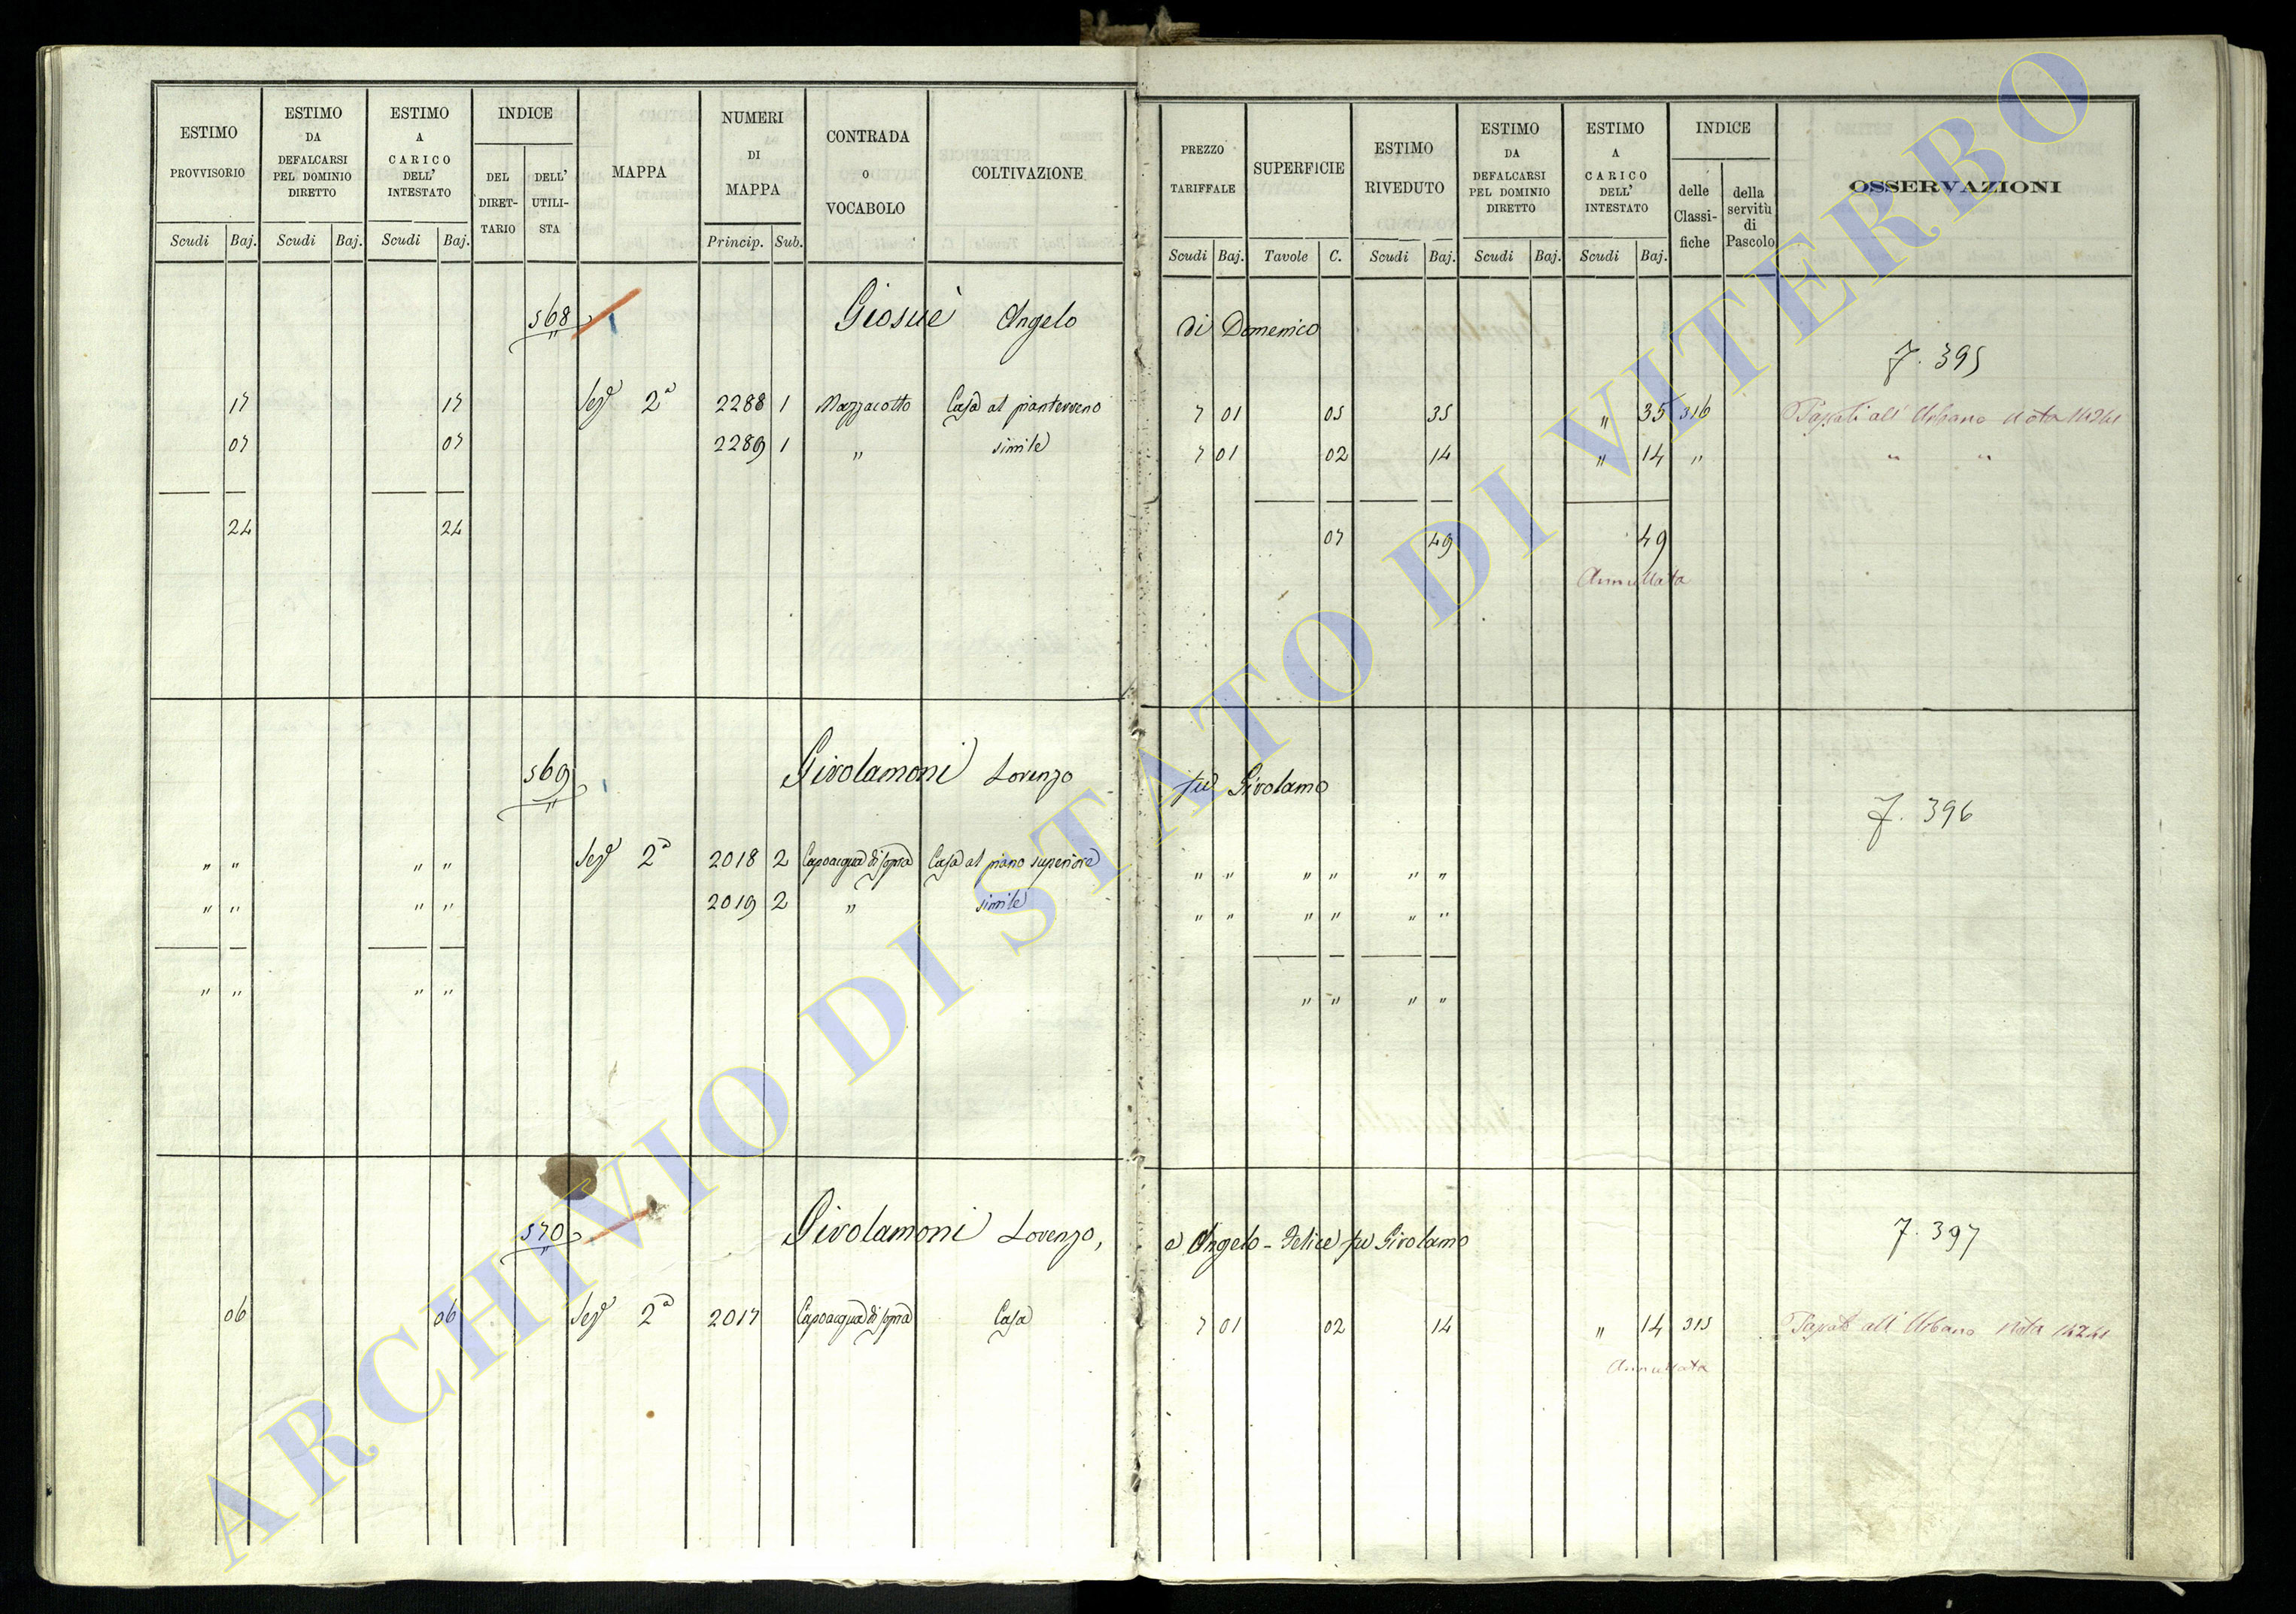 ESTIMO PROVVISORIO
ESTIMO DA DEFALCARSI PEL DOMINIO DIRETTO
ESTIMO A CARICO DELL' INTESTATO
INDICE
DEL DIRET- TARIO
DELL' UTILI- STA
MAPPA
NUMERI DI MAPPA
CONTRADA O VOCABOLO
COLTIVAZIONE
PREZZO TARIFFALE
SUPERFICIE
ESTIMO RIVEDUTO
ESTIMO DA DEFALCARSI PEL DOMINIO DIRETTO
ESTIMO A CARICO DELL' INTESTATO
INDICE
delle Classi- fiche
della servitù di Pascolo
OSSERVAZIONI
Scudi Baj. Scudi Baj. Scudi Baj. Princip. Sub. Scudi Baj. Tavole C. Scudi Baj. Scudi Baj. Scudi Baj.
568 Giosuè Angelo di Domenico
7. 395
17 17 Sez.e 2a 2288 1 Mazzacotto Casa al pianterreno 7 01 05 35 " 35 316 Passati all' Urbano Nota
07 07 2289 1 " simile 7 01 02 14 " 14 " " "
24 24 07 49 49
Annullata
569 Girolamoni Lorenzo fu Girolamo
7. 396
" " " " Sez.e 2a 2018 2 Capoacqua di sopra Casa al piano superiore " " " " " "
" " " " 2019 2 " simile " " " " " "
" " " " " " " "
570 Girolamoni Lorenzo, e Angelo-Felice fu Girolamo
7. 397
06 06 Sez.e 2a 2017 Capoacqua di sopra Casa 7 01 02 14 " 14 315 Passato all' Urbano Nota
Annullata
ARCHIVIO DI STATO DI VITERBO